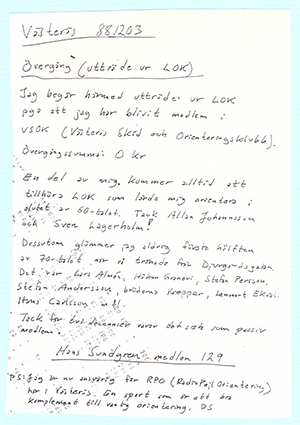 Västerås 881203
Övergång (utträde ur LOK)
Jag begär härmed utträde ur LOK
pga att jag har blivit medlem i
VSOK (Västerås Skid och Orienteringsklubb).
Övergångssumma: 0 kr
En del av mig kommer alltid att
tillhöra LOK som lärde mig orientera i
slutet av 60-talet. Tack Allan Johansson
och Sven Lagerholm!
Dessutom glömmer jag aldrig första hälften
av 70-talet när vi tränade från Djurgårdsgatan.
Det var Lars Almén, Håkan, Stefan Persson,
Stefan Andersson, bröderna, Lennart
Hans Carlsson m fl.
Tack för två decennier varav det sista som passiv
medlem.
Hans Sundgren, medlem 129
PS: Jag är nu ansvarig för RPO (RadioPejlOrientering)
här i Västerås. En sport som är ett bra
komplement till vanlig orientering. DS